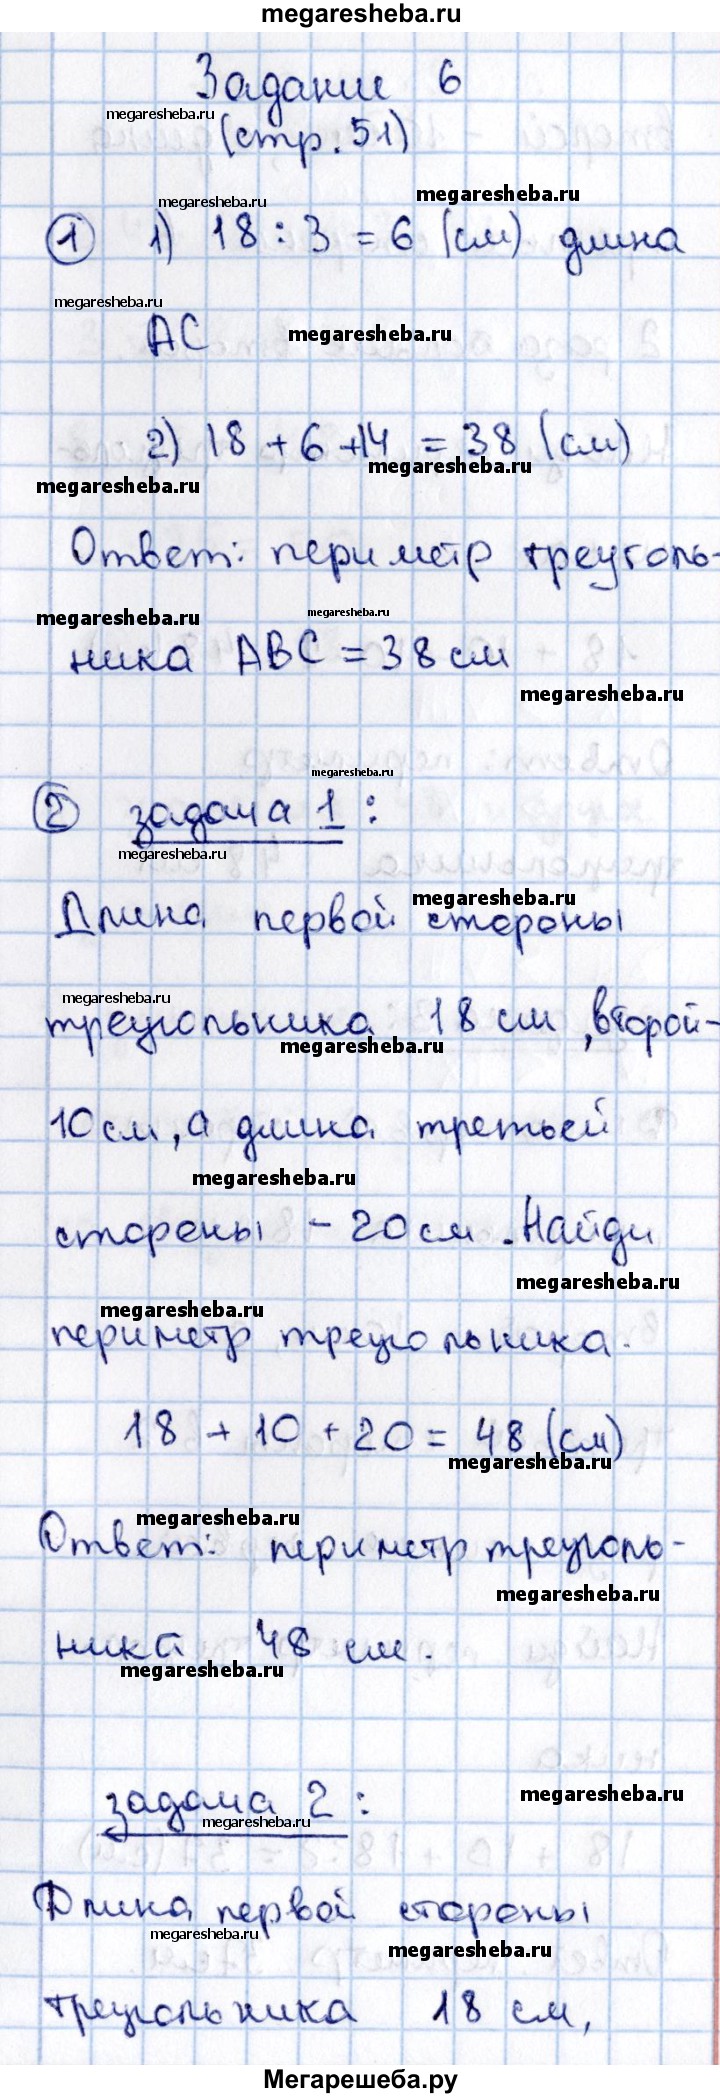 megaresheba.ru
Задание 6
megaresheba.ru
(стр. 51)
megaresheba.ru
megaresheba.ru
1 1) 18 : 3 = 6 (см) длина
megaresheba.ru
АС
megaresheba.ru
2) 18 + 6 + 14 = 38 (см)
megaresheba.ru
megaresheba.ru
Ответ: периметр треуголь-
megaresheba.ru
megaresheba.ru
ника АВС = 38 см
megaresheba.ru
megaresheba.ru
2 задача 1 :
megaresheba.ru
megaresheba.ru
Длина первой стороны
megaresheba.ru
треугольника 18 см, второй -
megaresheba.ru
10 см, а длина третьей
megaresheba.ru
стороны - 20 см. Найди
megaresheba.ru
megaresheba.ru
периметр треугольника.
18 + 10 + 20 = 48 (см)
megaresheba.ru
megaresheba.ru
Ответ: периметр треуголь-
megaresheba.ru
ника 48 см.
megaresheba.ru
megaresheba.ru
задача 2 :
megaresheba.ru
Длина первой стороны
megaresheba.ru
megaresheba.ru
треугольника 18 см,
Мегарешеба.ру